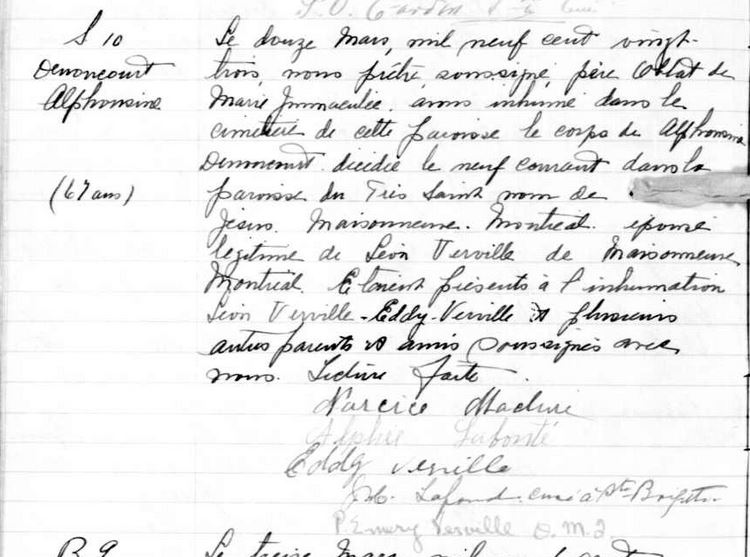 S 10
Denoncourt
Alphonsine
(67 ans)
Le douze Mars, mil neuf cent vingt-
trois, nous prêtre soussigné, père Oblat de
Marie Immaculée. avons inhumé dans le
cimetière de cette paroisse le corps de Alphonsine
Denoncourt décédée le neuf courant dans la
paroisse du Très Saint nom de
Jésus. Maisonneuve. Montreal. épouse
légitime de Léon Verville de Maisonneuve
Montréal. Etaient présents à l'inhumation
Léon Verville - Eddy Verville & plusieurs
autres parents & amis soussignés avec
nous. Lecture faite.
Narcice
Alphie Labonté
Eddy Verville
Lafond. curé à Ste Brigitte.
P. Emery Verville O.M.I.
B 9
Le treize Mars